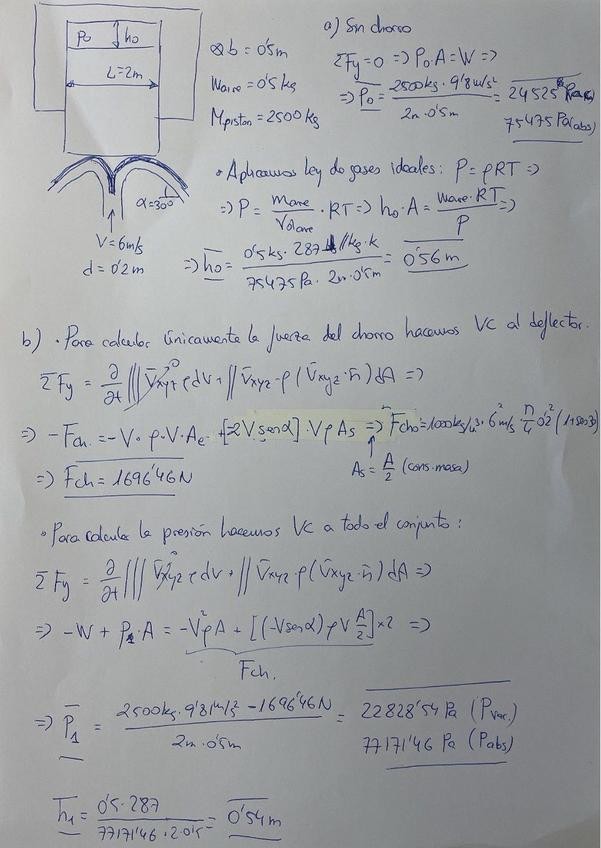 a) Sin chorro
P0
h0
L=2m
b=0'5m
maire=0'5kg
Mpiston=2500kg
α=30º
V=6m/s
d=0'2m
ΣFy=0 => P0·A=W =>
=> P0 = 2500kg·9'8m/s² / 2m·0'5m = 24525 Pa
75475 Pa(abs)
• Aplicamos Ley de gases ideales: P=ρRT =>
=> P = maire / Volaire · RT => h0·A = maire·RT / P =>
=> h0 = 0'5kg·287 J/kg·K / 75475Pa·2m·0'5m = 0'56m
b) • Para calcular únicamente la fuerza del chorro hacemos VC al deflector.
ΣFy = ∂/∂t ∭ V̄xyz ρdV + ∬ V̄xyz·ρ(V̄xyz·n̄)dA =>
=> -Fch = -V·ρ·V·Ae + [-2V senα]·VρAs => Fcho=1000kg/m³·6²m/s·π/4 0'2²(1+sen3
As = A/2 (cons. masa)
=> Fch = 1696'46N
• Para calcular la presión hacemos VC a todo el conjunto:
ΣFy = ∂/∂t ∭ V̄xyz ρdV + ∬ V̄xyz ρ(V̄xyz·n̄)dA =>
=> -W + P1·A = -V²ρA + [(-Vsenα)ρV A/2]×2 =>
Fch.
=> P1 = 2500kg·9'81m/s² - 1696'46N / 2m·0'5m = 22828'54 Pa (Pvac.)
77171'46 Pa (Pabs)
h1 = 0'5·287 / 77171'46·2·0'5 = 0'54m